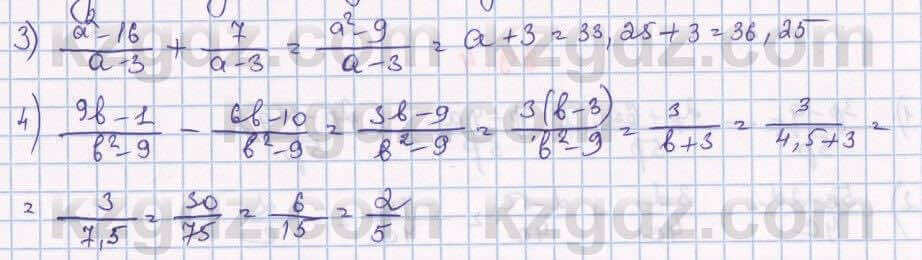 3) (a²-16)/(a-3) + 7/(a-3) = (a²-9)/(a-3) = a+3 = 33,25+3 = 36,25
4) (9b-1)/(b²-9) - (6b-10)/(b²-9) = (3b-9)/(b²-9) = 3(b-3)/(b²-9) = 3/(b+3) = 3/(4,5+3) =
= 3/7,5 = 30/75 = 6/15 = 2/5